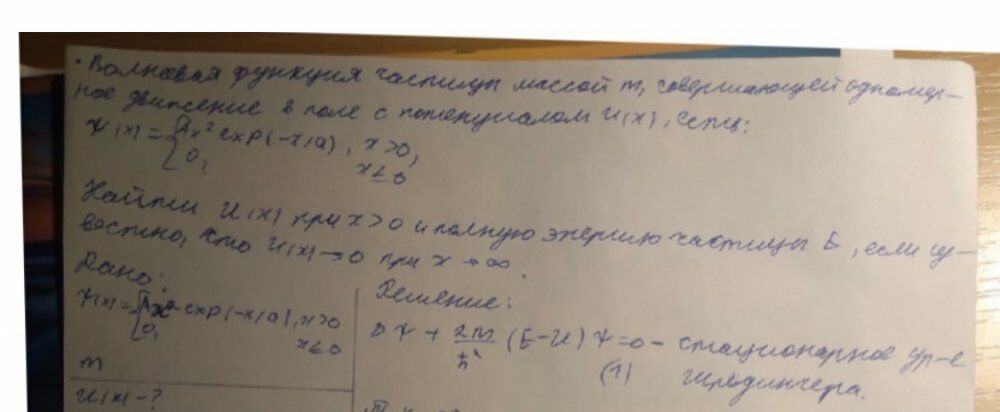 • Волновая функция частицы массой m, совершающей одномер-
ное движение в поле с потенциалом U(x), есть:
Ψ(x) = { Ax² exp(-x/a), x>0,
0, x≤0
Найти U(x) при x>0 и полную энергию частицы E, если из-
вестно, что U(x)→0 при x→∞.
Дано:
Решение:
Ψ(x) = { Ax² exp(-x/a), x>0
0, x≤0
m
U(x) - ?
ΔΨ + 2m/ħ² (E-U) Ψ = 0 - стационарное ур-е
(1) Шредингера.